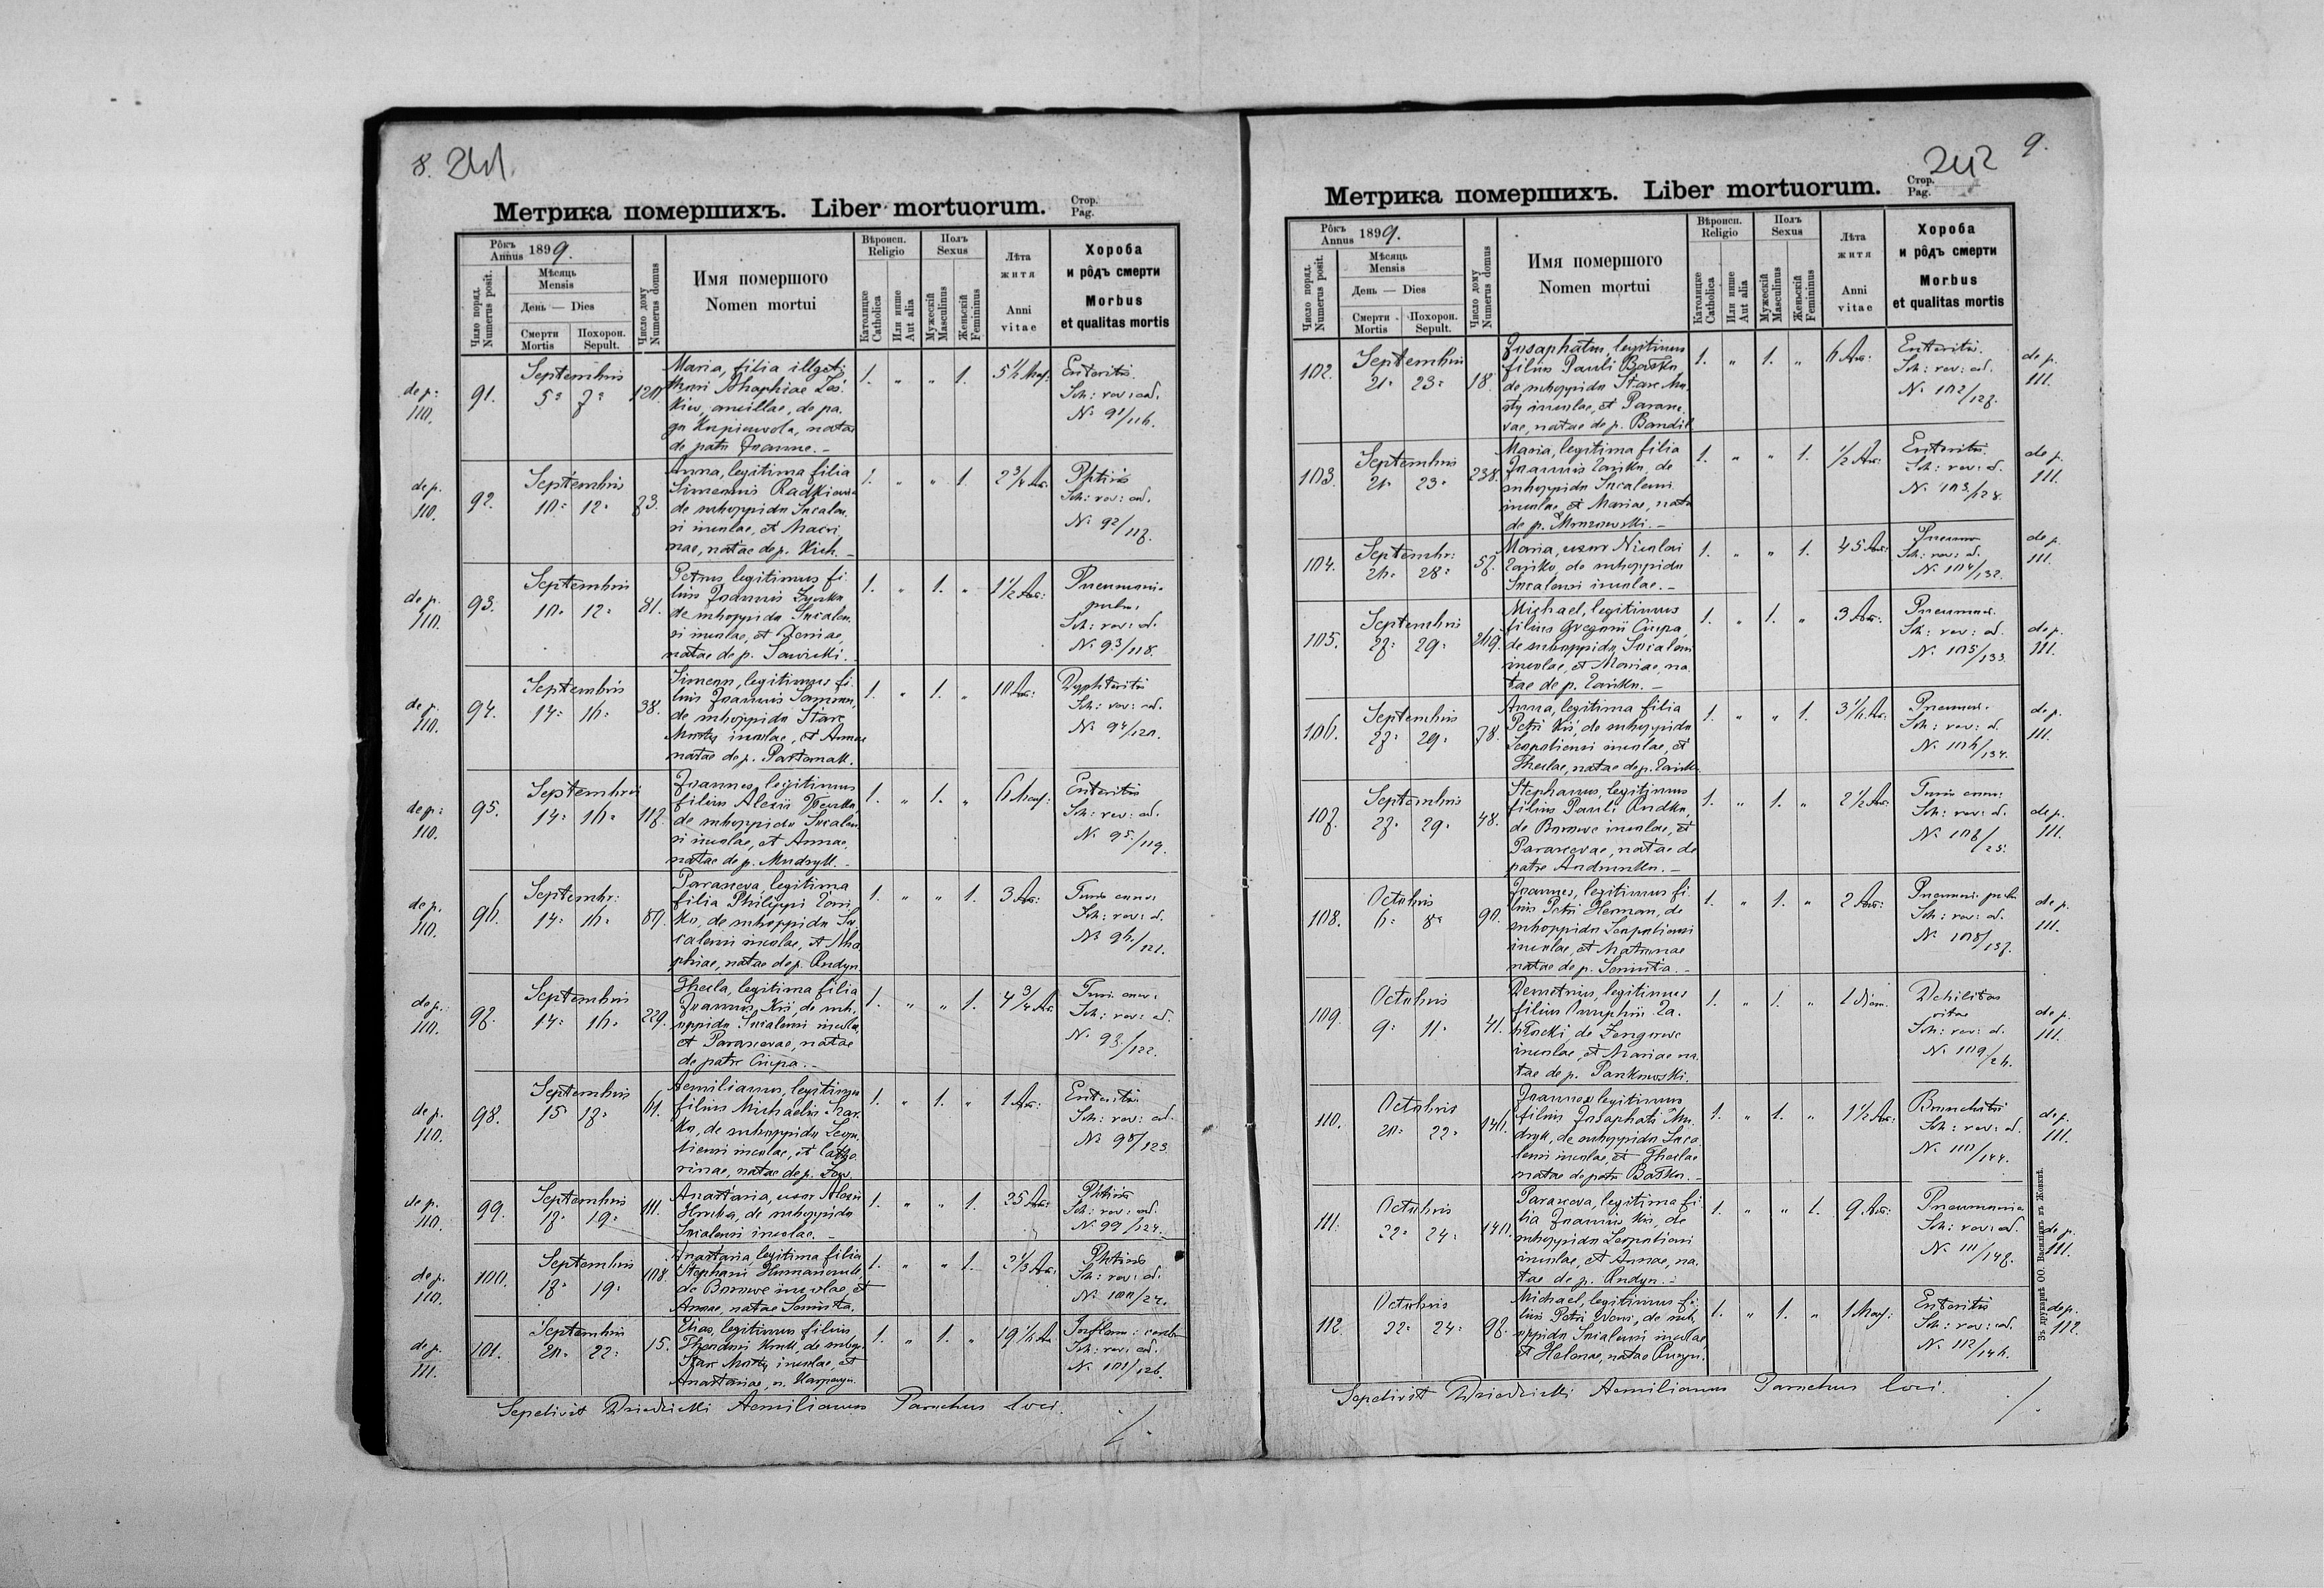 8. 241.
Метрика помершихъ. Liber mortuorum. Стор. Pag.
Рôкъ Annus 1899.
Мѣсяць Mensis
День — Dies
Смерти Mortis
Похорон. Sepult.
Число поряд. Numerus posit.
Число дому Numerus domus
Имя помершого
Nomen mortui
Вѣроисп. Religio
Католицке Catholica
Или инше Aut alia
Полъ Sexus
Мужескій Masculinus
Женьскій Femininus
Лѣта житя
Anni vitae
Хороба
и рôдъ смерти
Morbus
et qualitas mortis
de p: 110. 91. Septembris 5. 7. 120.
Maria, filia illegi-
kiw, ancillae, de pa-
natae
de patre Joanne. –
1. " " 1. 5 1/2 Mens: Enteritis. Sch: rev: ad. N. 91/116.
de p. 110. 92. Septembris 10. 12. 73.
Anna, legitima filia
Simeonis Radkiewicz
de suboppido Sucalen
si incolae, et Macri
nae, natae de p. Kich. –
1. " " 1. 2 3/4 An: Phtisis Sch: rev: ad. N. 92/117.
de p. 110. 93. Septembris 10. 12. 81.
Petrus legitimus fi-
lius Joannis
de suboppido Sucalen
si incolae, et Xeniae,
natae de p. Sawicki. –
1. " 1. " 1 1/2 An: Pneumonia pulm. Sch: rev: ad. N. 93/118.
de p. 110. 94. Septembris 14. 16. 38.
Simeon, legitimus fi-
lius Joannis
de suboppido Stare
Miasto incolae, et Annae
natae de p. Pasternak.
1. " 1. " 10 An: Dyphteritis Sch: rev: ad. N. 94/120.
de p: 110. 95. Septembris 14. 16. 117.
Joannes, legitimus
filius Alexii
de suboppido Sucalen
si incolae, et Annae,
natae de p. Mudryk. –
1. " 1. " 6 Mens: Enteritis Sch: rev: ad. N. 95/119.
de p. 110. 96. Septembr: 14. 16. 89.
Parasceva, legitima
filia Philippi Zani
ko, de suboppido Su
calensi incolae, et
phiae, natae de p. Rudyn
1. " " 1. 3 An: Sch: rev: ad. N. 96/121.
de p. 110. 97. Septembris 14. 16. 229.
Thecla, legitima filia
Joannis Kis, de sub
oppido Sucalensi incolae,
et Parascevae, natae
de patre Ciupa. –
1. " " 1. 4 3/4 An: Sch: rev: ad. N. /122.
de p. 110. 98. Septembris 15 17. 61.
Aemilianus, legitimus
filius Michaelis
ko, de suboppido Leopo
liensi incolae, et Catha
rinae, natae de p.
1. " 1. " 1 An: Enteritis Sch: rev: ad. N. 98/123.
de p. 110. 99. Septembris 17. 19. 111.
Anastasia, uxor Alexii
Hruba, de suboppido
Sucalensi incolae. –
1. " " 1. 25 An: Phtisis Sch: rev: ad. N. 99/124.
de p. 110. 100. Septembris 17. 19. 108.
Anastasia, legitima filia
Stephani
de Borowe incolae, et
Annae, natae Seniuta.
1. " " 1. 2 1/3 An: Phtisis Sch: rev: ad. N. 100/24.
de p. 111. 101. Septembris 20. 22. 15.
Elias, legitimus filius
Theodori de subop.
Stare Miasto incolae, et
Anastasiae, n.
1. " 1. " 19 1/2 An Inflam: cerebri Sch: rev: ad. N. 101/126.
Sepelivit Dziedzicki Aemilianus Parochus loci. ./.
9.
242
Метрика помершихъ. Liber mortuorum. Стор. Pag.
Рôкъ Annus 1899.
Мѣсяць Mensis
День — Dies
Смерти Mortis
Похорон. Sepult.
Число поряд. Numerus posit.
Число дому Numerus domus
Имя помершого
Nomen mortui
Вѣроисп. Religio
Католицке Catholica
Или инше Aut alia
Полъ Sexus
Мужескій Masculinus
Женьскій Femininus
Лѣта житя
Anni vitae
Хороба
и рôдъ смерти
Morbus
et qualitas mortis
102. Septembris 21. 23. 18.
Josaphatus, legitimus
filius Pauli Baśko,
de suboppido Stare Mia
sty incolae, et Parasce
vae, natae de p.
1. " 1. " 6 An: Enteritis. Sch: rev: ad. N. 102/127. de p. 111.
103. Septembris 21. 23. 238.
Maria, legitima filia
Joannis Zańko, de
suboppido Sucalensi
incolae, et Mariae, natae
de p. Mrozowski. –
1. " " 1. 1/2 An: Enteritis. Sch: rev: ad. N. 103/128. de p. 111.
104. Septembr: 26. 28. 57.
Maria, uxor Nicolai
Zańko, de suboppido
Sucalensi incolae. –
1. " " 1. 45 An: Sch: rev: ad. N. 104/132. de p. 111.
105. Septembris 27. 29. 219.
Michael, legitimus
filius Gregorii Ciupa,
de suboppido Sucalensi
incolae, et Mariae, na
tae de p. Zańko. –
1. " 1. " 3 An: Pneumon. Sch: rev: ad. N. 105/133. de p. 111.
106. Septembris 27. 29. 78.
Anna, legitima filia
Petri Kis, de suboppido
Leopoliensi incolae, et
Theclae, natae de p. Zańko.
1. " " 1. Pneumon. Sch: rev: ad. N. 106/134. de p. 111.
107. Septembris 27. 29. 48.
Stephanus, legitimus
filius Pauli Rudko,
de Borowe incolae, et
Parascevae, natae de
patre Andrunko. –
1. " 1. " 2 1/2 An: Sch: rev: ad. N. 107/25. de p. 111.
108. Octobris 6. 8. 90.
Joannes, legitimus fi-
lius Petri Herman, de
suboppido Leopoliensi
incolae, et Matronae
natae de p. Seniuta. –
1. " 1. " 2 An: Pneumon: pulm. Sch: rev: ad. N. 108/137. de p. 111.
109. Octobris 9. 11. 41.
Demetrius, legitimus
filius Onuphrii Za-
błocki de
incolae, et Mariae na
tae de p. Pankowski.
1. " 1. " 1 diem. Debilitas vitae Sch: rev: ad. N. 109/26. de p. 111.
110. Octobris 20. 22. 146.
Joannes legitimus
filius Josaphati Mu
dryk, de suboppido Suca
lensi incolae, et Theclae
natae de patre Baśko. –
1. " 1. " 1 1/2 An: Bronchitis Sch: rev: ad. N. 110/144. de p. 111.
111. Octobris 22. 24. 140.
Parasceva, legitima fi
lia Joannis Kis, de
suboppido Leopoliensi
incolae, et Annae, na
tae de p. Rudyn. –
1. " " 1. 9 An: Pneumonia Sch: rev: ad. N. 111/147. de p. 111.
112. Octobris 22. 24. 97.
Michael, legitimus fi
lius Petri de sub
oppido Sucalensi incolae,
et Helenae, natae
1. " 1. " 1 Mens: Enteritis Sch: rev: ad. N. 112/146. de p. 112.
Зъ друкарнѣ ОО. Василіянъ въ Жовквѣ.
Sepelivit Dziedzicki Aemilianus Parochus loci. ./.